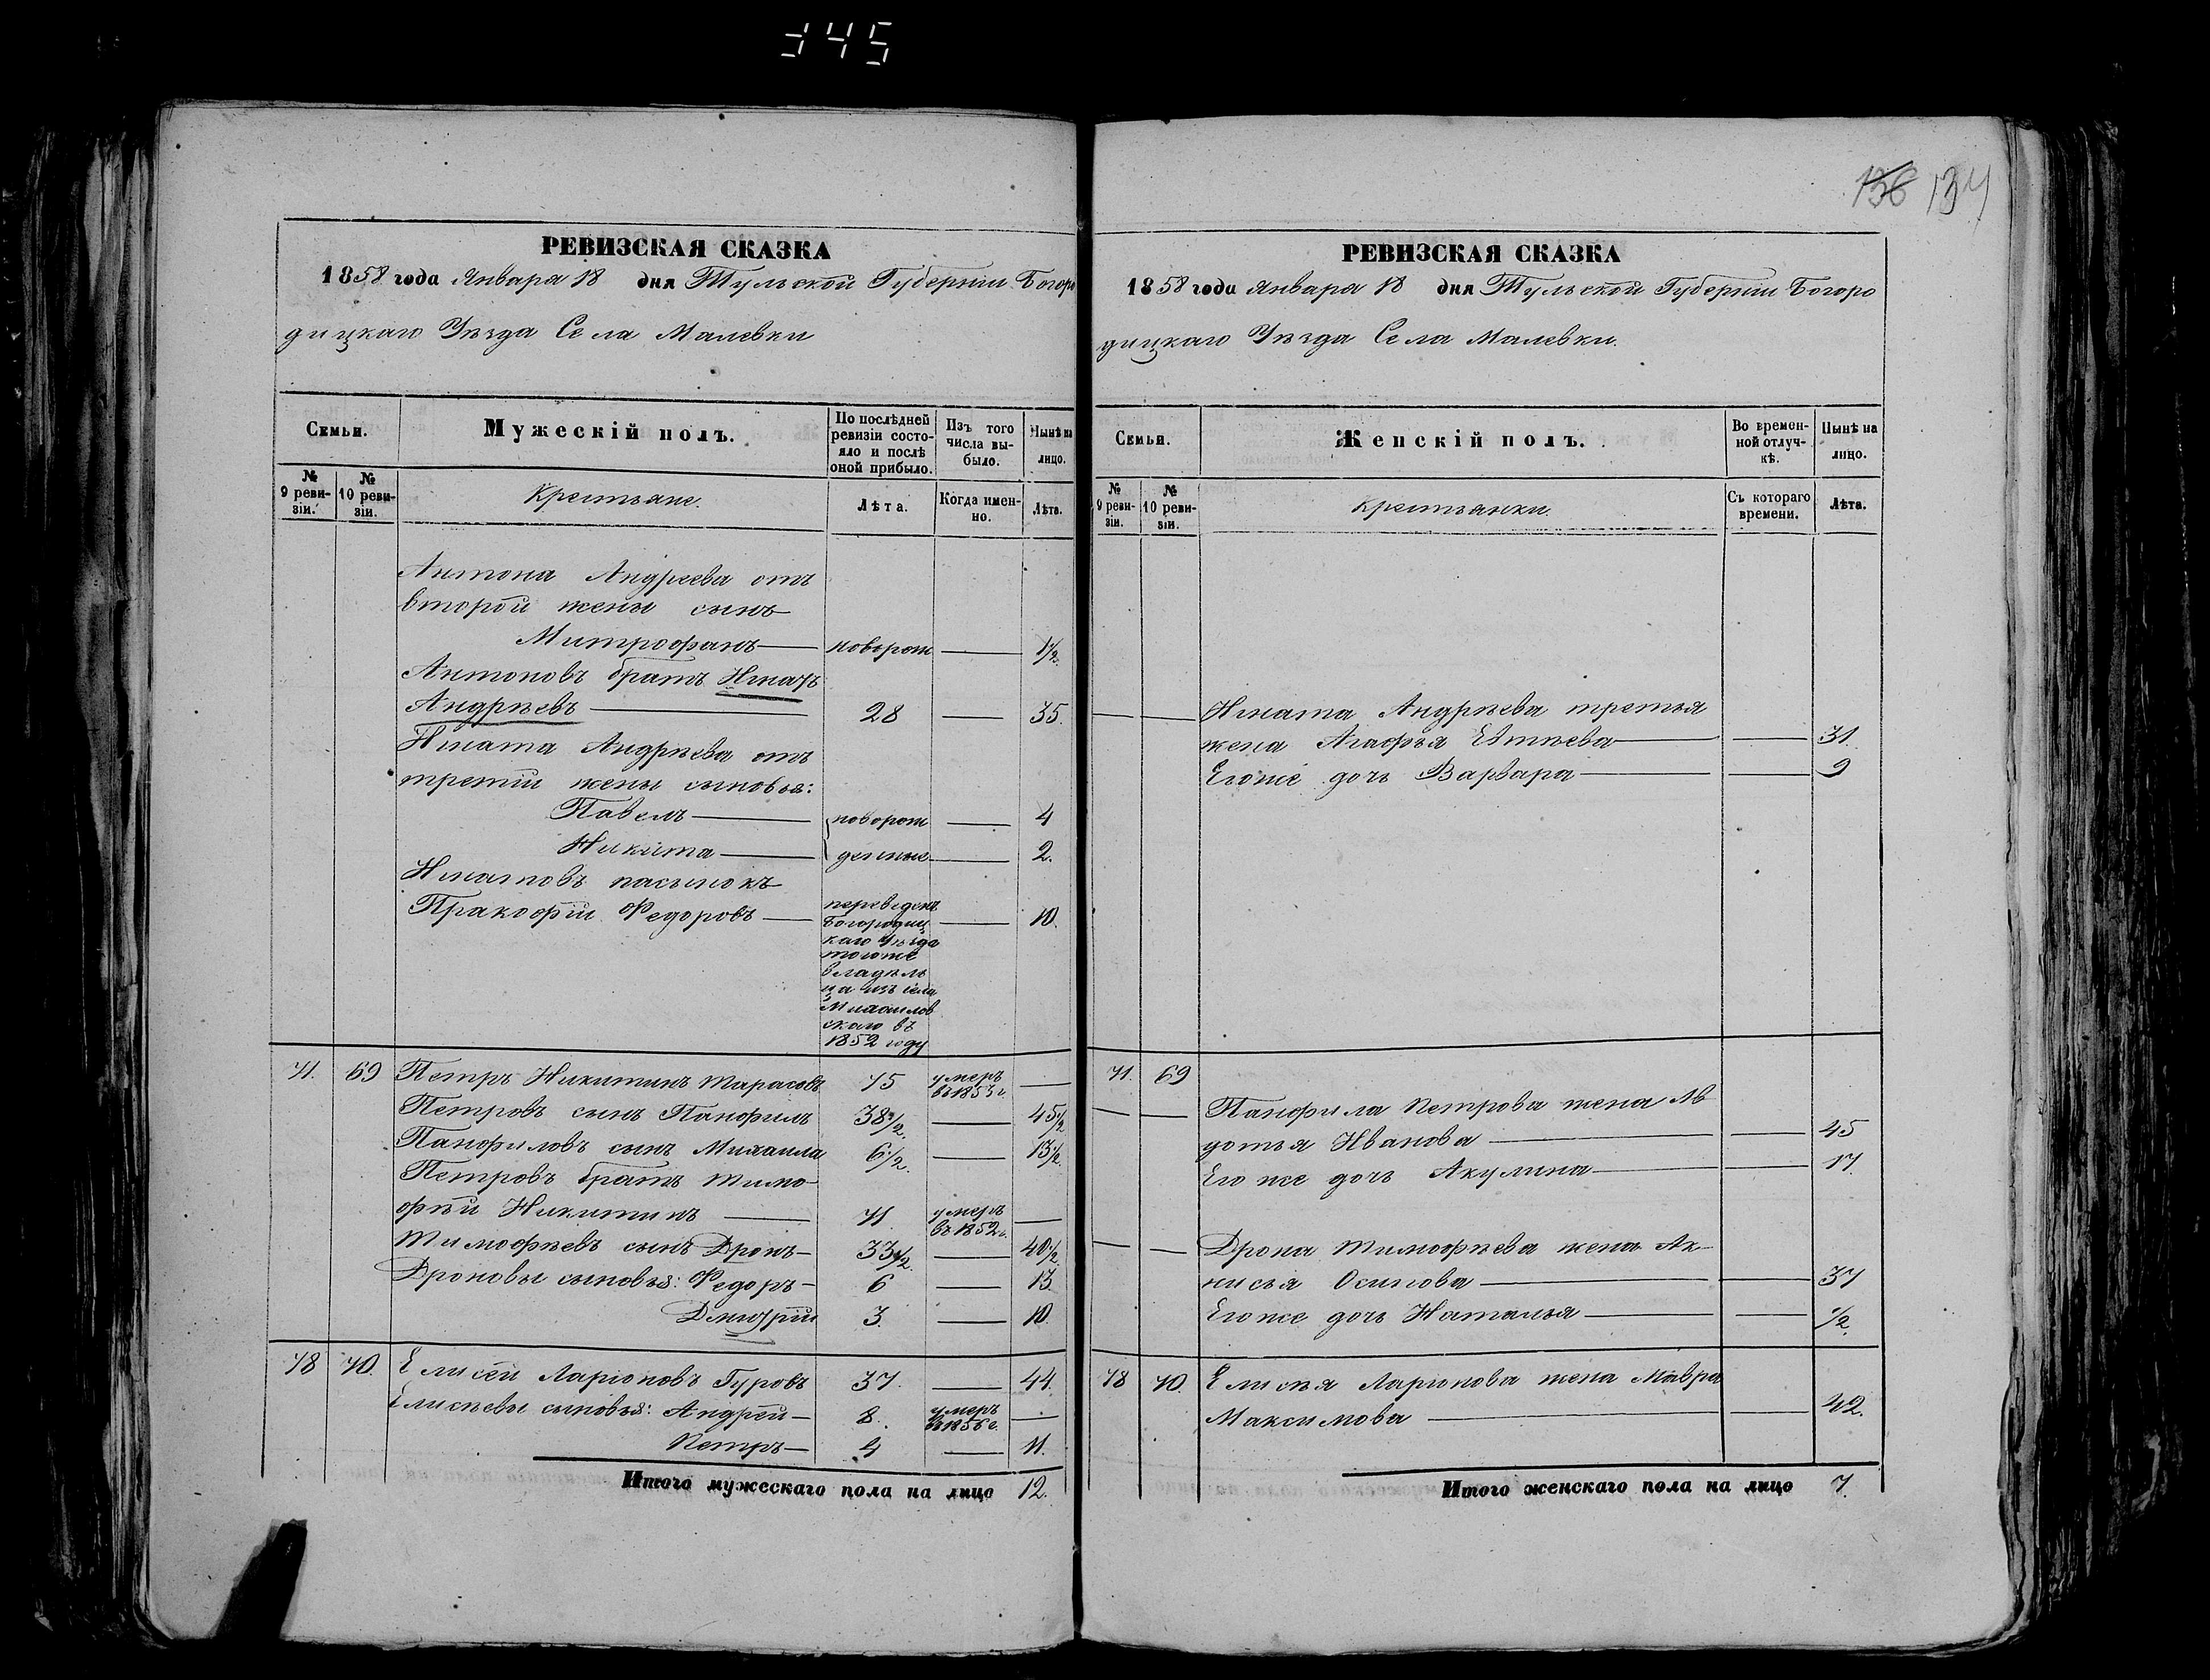 345
136 134
РЕВИЗСКАЯ СКАЗКА
1858 года Января 18 дня Тульской Губерніи Богоро
дицкаго Уѣзда Села Малевки
Семьи.
Мужескій полъ.
По послѣдней ревизіи состояло и послѣ оной прибыло.
Изъ того числа выбыло.
Нынѣ на лицо.
№ 9 ревизіи.
№ 10 ревизіи.
Крестьяне.
Лѣта.
Когда именно.
Лѣта.
Антона Андреева отъ
второй жены сынъ
Митрофанъ — новорож — 1/2.
Антоновъ братъ Игнатъ
Андрѣевъ — 28 — 35.
Игната Андрѣева отъ
третій жены сыновья:
Павелъ — новорож — 4
Никита — денные — 2.
Игнатовъ пасынокъ
Пракофій Федоровъ — переведенъ — 10.
Богородиц
каго Уѣзда
тогоже
владѣль
ца изъ села
Михайлов
скаго въ
1852 году
71. 69 Петръ Никитинъ Тарасовъ 75 умеръ въ 1853 г. —
Петровъ сынъ Панфилъ 38 1/2. — 45 1/2
Панфиловъ сынъ Михаила 6 1/2. — 13 1/2.
Петровъ братъ Тимо-
фѣй Никитинъ — 71. умеръ въ 1852 г. —
Тимофѣевъ сынъ Дронъ — 33 1/2. — 40 1/2
Дроновы сыновья: Федоръ — 6 — 13
Дмитрій 3. — 10.
78 70. Елисей Ларіоновъ Гуровъ 37. — 44.
Елисѣевы сыновья: Андрей — 8. умеръ въ 1856 г. —
Петръ — 4 — 11.
Итого мужескаго пола на лицо 12.
РЕВИЗСКАЯ СКАЗКА
1858 года Января 18 дня Тульской Губерніи Богоро
дицкаго Уѣзда Села Малевки.
Семьи.
Женскій полъ.
Во временной отлучкѣ.
Нынѣ на лицо.
№ 9 ревизіи.
№ 10 ревизіи.
Крестьянки.
Съ котораго времени.
Лѣта.
— — Игната Андрѣева третья
жена Агафья Евтѣева — — 31.
Егоже дочь Варвара — — 9
71. 69
— — Панфила Петрова жена Ав
дотья Иванова — — 45
Его же дочь Акулина — — 17.
— — Дрона Тимофѣева жена Ак-
нисья Осипова — — 37
Его же дочь Наталья — — 1/2.
78 70. Елисѣя Ларіонова жена Мавра
Максимова — — 42.
Итого женскаго пола на лицо 7.